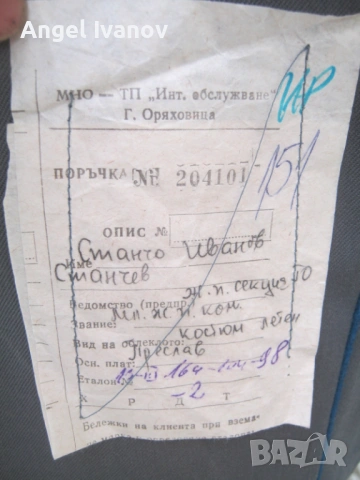 Angel Ivanov
МНО — ТП „Инт. обслужване"
Г. Оряховица
ИР
ПОРЪЧКА № 204101
151
ОПИС №
Станчо Иванов
Име
Станчев
Ж.п. секция ГО
Ведомство (предпр.)
Мл. ж.п. кон.
Звание:
костюм летен
Вид на облеклото:
Преслав
Осн. плат:
164 98
Еталон:
-2
К Р Д Т
Бележки на клиента при взема-
BAZAR